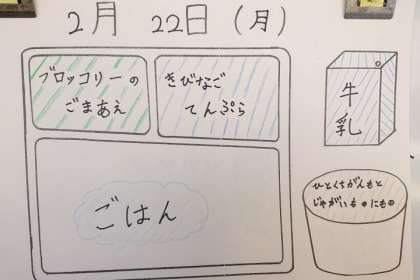 2月 22日 (月)
ブロッコリーの
ごまあえ
きびなご
てんぷら
牛
乳
ごはん
ひとくちがんもと
じゃがいものにもの